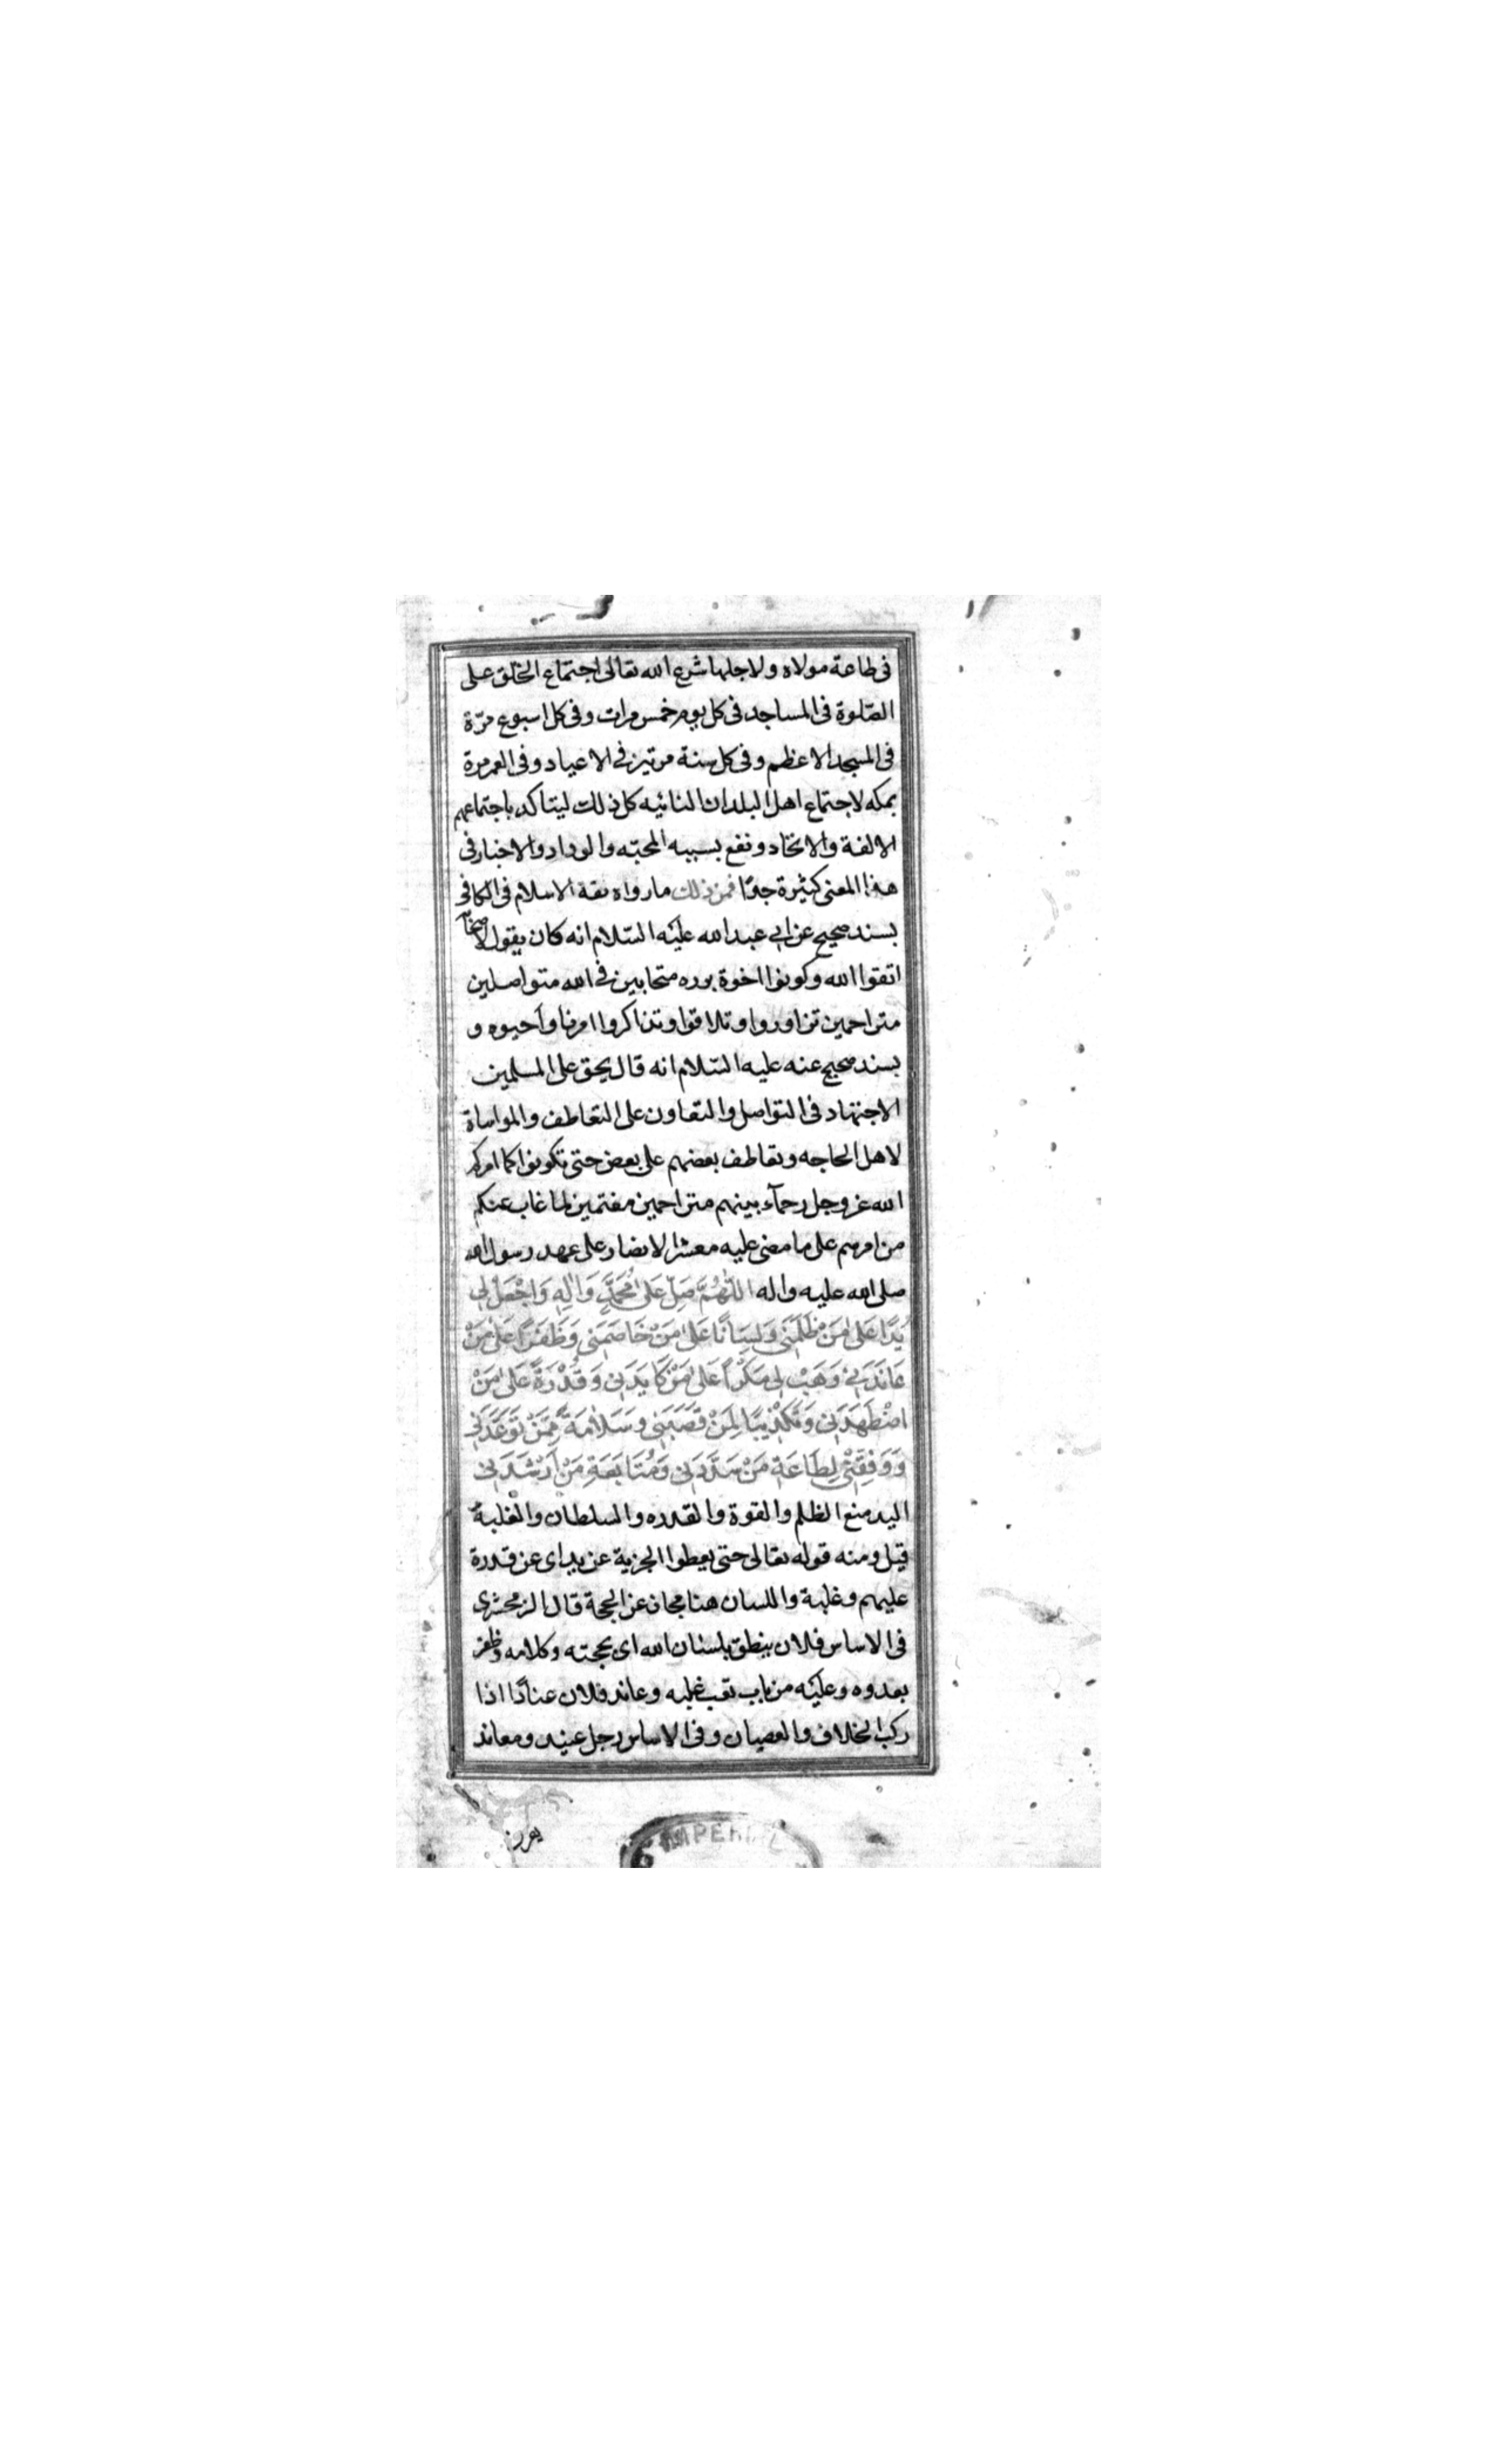 فى طاعة مولاه ولاجلها شرع الله تعالى اجتماع الخلق على
الصّلوة فى المساجد فى كل يوم خمس مرات وفى كل اسبوع مرّة
فى المسجد الاعظم وفى كل سنة مرتين فى الاعياد وفى العمر مرة
بمكه لاجتماع اهل البلدان النائيه كل ذلك ليتاكد باجتماعهم
الالفة والاتحاد ونفع بسببه المحبّه والوداد والاخبار فى
هذا المعنى كثيرة جدّا فمن ذلك ما رواه ثقة الاسلام فى الكافى
بسند صحيح عن ابى عبد الله عليه السّلام انه كان يقول لاصحابه
اتقوا الله وكونوا اخوة برره متحابين فى الله متواصلين
متراحمين تزاوروا وتلاقوا وتذاكروا امرنا واحيوه و
بسند صحيح عنه عليه السّلام انه قال يحق على المسلمين
الاجتهاد فى التواصل والتعاون على التعاطف والمواساة
لاهل الحاجه وتعاطف بعضهم على بعض حتى تكونوا كما امركم
الله عز وجل رحمآء بينهم متراحمين مغتمين لما غاب عنكم
من امرهم على ما مضى عليه معشر الانصار على عهد رسول الله
صلى الله عليه واله اللّهُمَّ صَلِّ عَلىٰ مُحَمَّدٍ وَاٰلِهِ وَاجْعَلْ لِى
يَدًا عَلىٰ مَنْ ظَلَمَنِى وَلِسَانًا عَلىٰ مَنْ خَاصَمَنِى وَظَفَرًا عَلىٰ مَنْ
عَانَدَنِى وَهَبْ لِى مَكْرًا عَلىٰ مَنْ كَايَدَنِى وَقُدْرَةً عَلىٰ مَنْ
اضْطَهَدَنِى وَتَكْذِيبًا لِمَنْ قَصَبَنِى وَسَلَامَةً مِمَّنْ تَوَعَّدَنِى
وَوَفِّقْنِى لِطَاعَةِ مَنْ سَدَّدَنِى وَمُتَابَعَةِ مَنْ اَرْشَدَنِى
اليد منع الظلم والقوة والقدره والسلطان والغلبة
قيل ومنه قوله تعالى حتى يعطوا الجزية عن يد اى عن قدرة
عليهم وغلبة واللسان هنا مجاز عن الحجة قال الزمخشرى
فى الاساس فلان ينطق بلسان الله اى بحجته وكلامه وظفر
بعدوه وعليه من باب تعب غلبه وعاند فلان عنادًا اذا
ركب الخلاف والعصيان وفى الاساس رجل عنيد ومعاند